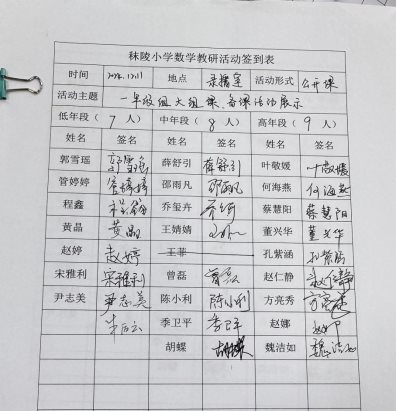 秣陵小学数学教研活动签到表
时间 2024.12.11 地点 录播室 活动形式 公开课
活动主题 一年级组大组课、备课活动展示
低年段（7人） 中年段（8人） 高年段（9人）
姓名 签名 姓名 签名 姓名 签名
郭雪瑶 郭雪瑶 薛舒引 薛舒引 叶敬媛 叶敬媛
管婷婷 管婷婷 邵雨凡 邵雨凡 何海燕 何海燕
程鑫 乔玺卉 蔡慧阳 蔡慧阳
黄晶 黄晶 王婧婧 董兴华 董兴华
赵婷 赵婷 王菲 孔紫涵 孔紫涵
宋雅利 宋雅利 曾磊 曾磊 赵仁静 赵仁静
尹志美 尹志美 陈小利 陈小利 方亮秀 方亮秀
季卫平 季卫平 赵娜
胡蝶 胡蝶 魏洁如 魏洁如